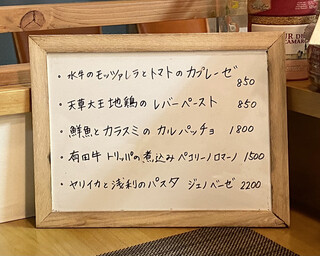 ・水牛のモッツァレラとトマトのカプレーゼ 850
・天草大王地鶏のレバーペースト 850
・鮮魚とカラスミのカルパッチョ 1800
・有田牛トリッパの煮込みペコリーノロマーノ 1500
・ヤリイカと浅利のパスタ ジェノベーゼ 2200
CAMARG